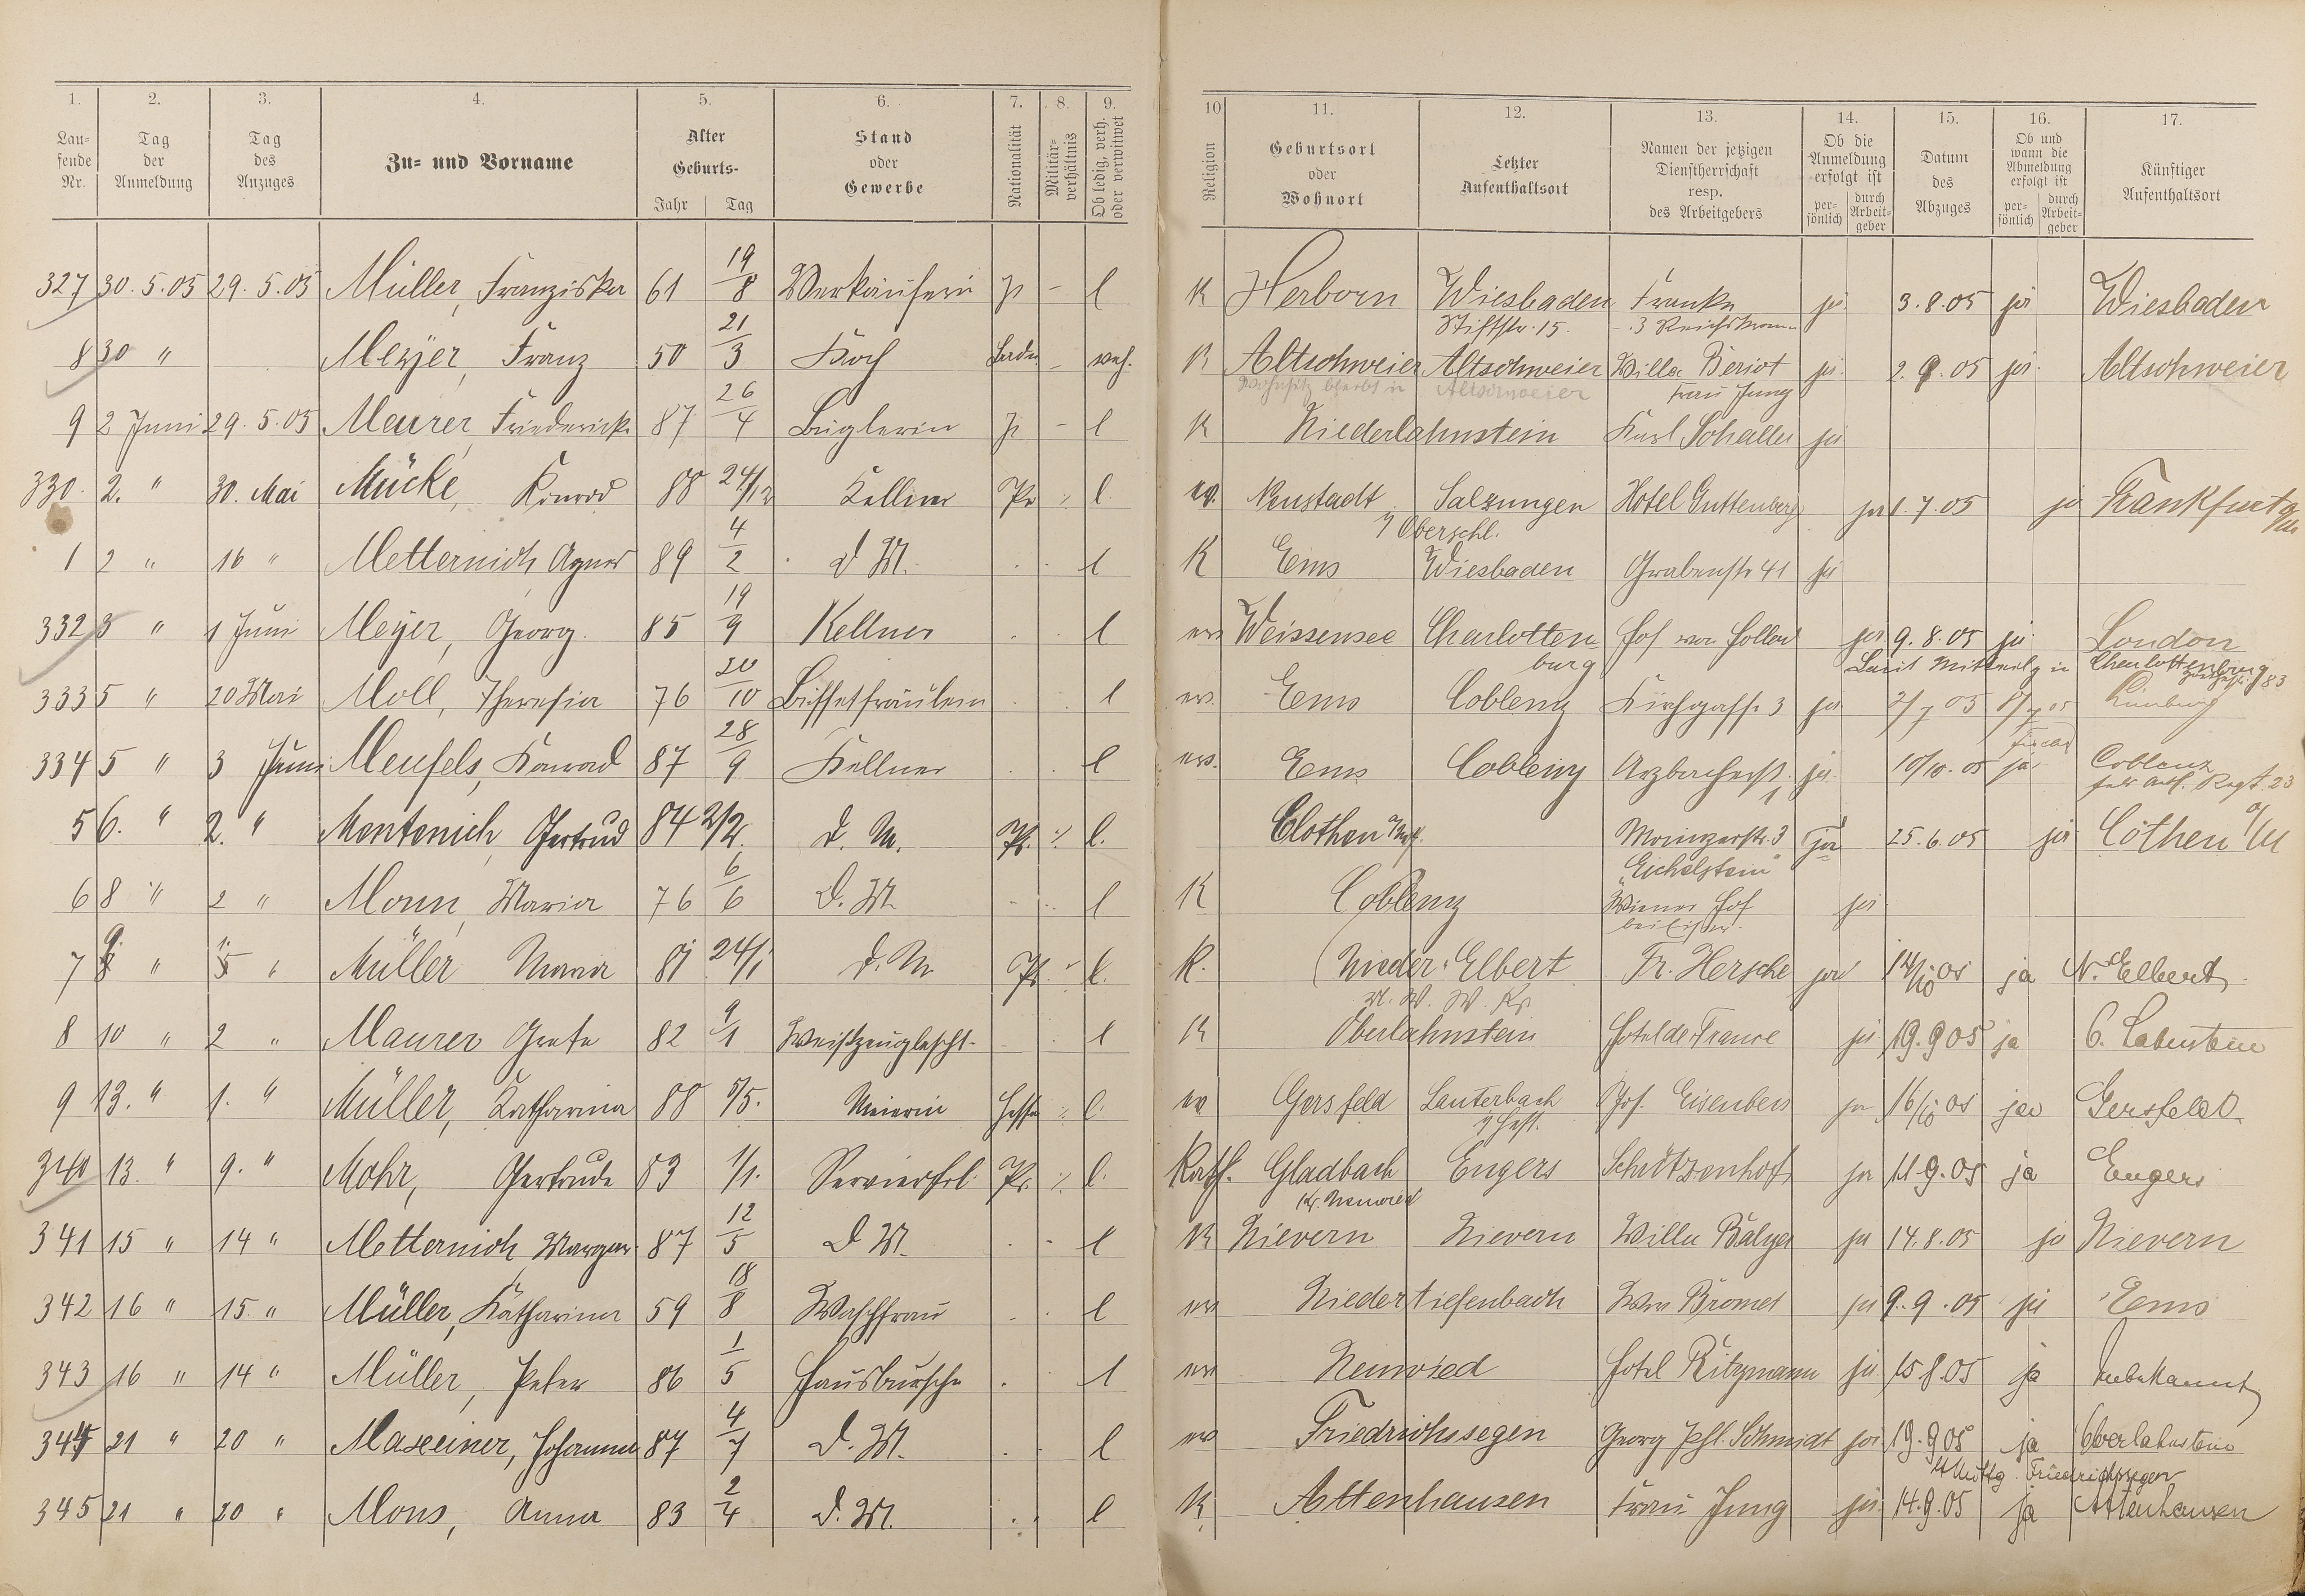 1. 2. 3. 4. 5. 6. 7. 8. 9. 10 11. 12. 13. 14. 15. 16. 17.
Lau=
sende
Nr.
Tag
der
Anmeldung
Tag
des
Anzuges
Zu= und Vorname
Alter
Geburts-
Jahr Tag
Stand
oder
Gewerbe
Nationalität
Militär-
verhältnis
Ob ledig, verh.
oder verwitwet
Religion
Geburtsort
oder
Wohnort
Letzter
Aufenthaltsort
Namen der jetzigen
Dienstherrschaft
resp.
des Arbeitgebers
Ob die
Anmeldung
erfolgt ist
per=
sönlich
durch
Arbeit=
geber
Datum
des
Abzuges
Ob und
wann die
Abmeldung
erfolgt ist
per=
sönlich
durch
Arbeit=
geber
Künftiger
Aufenthaltsort
327 30. 5. 05 29. 5. 05 Müller, Franziska 61 19/8 Verkäuferin p - l K Herborn Wiesbaden Franke ja 3. 8. 05 ja Wiesbaden
Stiftstr. 15.
8 30 " Meyer, Franz 50 21/3 Koch Baden - verh. K Altschweier Altschweier Villa Beriot ja 2. 9. 05 ja Altschweier
Wohnsitz bleibt in Altschweier Frau Jung
9 2 Juni 29. 5. 05 Meurer Friedericke 87 26/4 Büglerin p - l K Niederlahnstein Karl Schaller ja
330. 2. " 30. Mai Mücke, Konrad 88 24/12 Kellner Pr ./. l. ev. Neustadt Salzungen Hotel Guttenberg ja 1. 7. 05 ja Frankfurt a/M
1/ Oberschl.
1 2 " 16 " Metternich Agnes 89 4/2 d M. l K Ems Wiesbaden Grabenstr 41 ja
332 3 " 1 Juni Meyer, Georg. 85 19/9 Kellner l ev Weissensee Charlotten Hof von Holland ja 9. 8. 05 ja London
burg Laut Mitteilg in Charlottenburg
333 5 " 20 Mai Moll, Theresia 76 20/10 Büffetfräulein l ev. Ems Coblenz Kirchgasse 3 ja 2/7 05 8/7 05 Limburg
334 5 " 3 Juni Meufels, Konrad 87 28/9 Kellner l ev. Ems Coblenz Arzbacherst. ja 10/10. 05 ja Coblenz
Regt. 23
5 6. " 2. " Montenich Gertrud 84 2/2. d. M. Pr. ./. l. Clothen Mainzerstr. 3 ja 25. 6. 05 ja Cöthen a/M
"Eichelstein"
6 8 " 2 " Monn, Maria 76 6/6 D. M. l K Coblenz Wiener Hof ja
7 9. " " Müller Maria 81 24/1 d. M Pr. ./. l. K. Nieder-Elbert Fr. Hersche ja 14/10 05 ja N. Elbert
U. W. W. Kr.
8 10 " 2 " Maurer Greta 82 9/1 l K Oberlahnstein Hotel de France ja 19. 9 05 ja O. Lahnstein
9 13. " 1. " Müller, Katharina 88 5/5. Meierin Hesse ./. l. ev Gersfeld Lauterbach Jos. Eisenbeis ja 16/10 05 ja Gersfeld
340 13. " 9. " Mohr, Gertrude 83 1/1. Servierfrl. Pr. ./. l. Kath. Gladbach Engers Schützenhof ja 11. 9. 05 ja Engers
Kr. Neuwied
341 15 " 14 " Metternich, Margar. 87 12/5 D M. l K Nievern Nievern Villa Balzer ja 14. 8. 05 ja Nievern
342 16 " 15. " Müller, Katharina 59 18/8 Waschfrau l ev Niedertiefenbach Ww Bromel ja 9. 9. 05 ja Ems
343 16 " 14 " Müller, Peter 86 1/5 Hausbursche l ev Neuwied Hotel Ritzmann ja 15. 8. 05 ja Unbekannt
344 21 " 20 " Maxeiner, Johanna 87 4/7 D. M. l ev Friedrichssegen Georg Phl. Schmidt ja 19. 9 05 ja Oberlahnstein
Friedrichssegen
345 21 " 20 " Mons, Anna 83 2/4 D. M. l K Attenhausen Frau Jung ja 14. 9. 05 ja Attenhausen